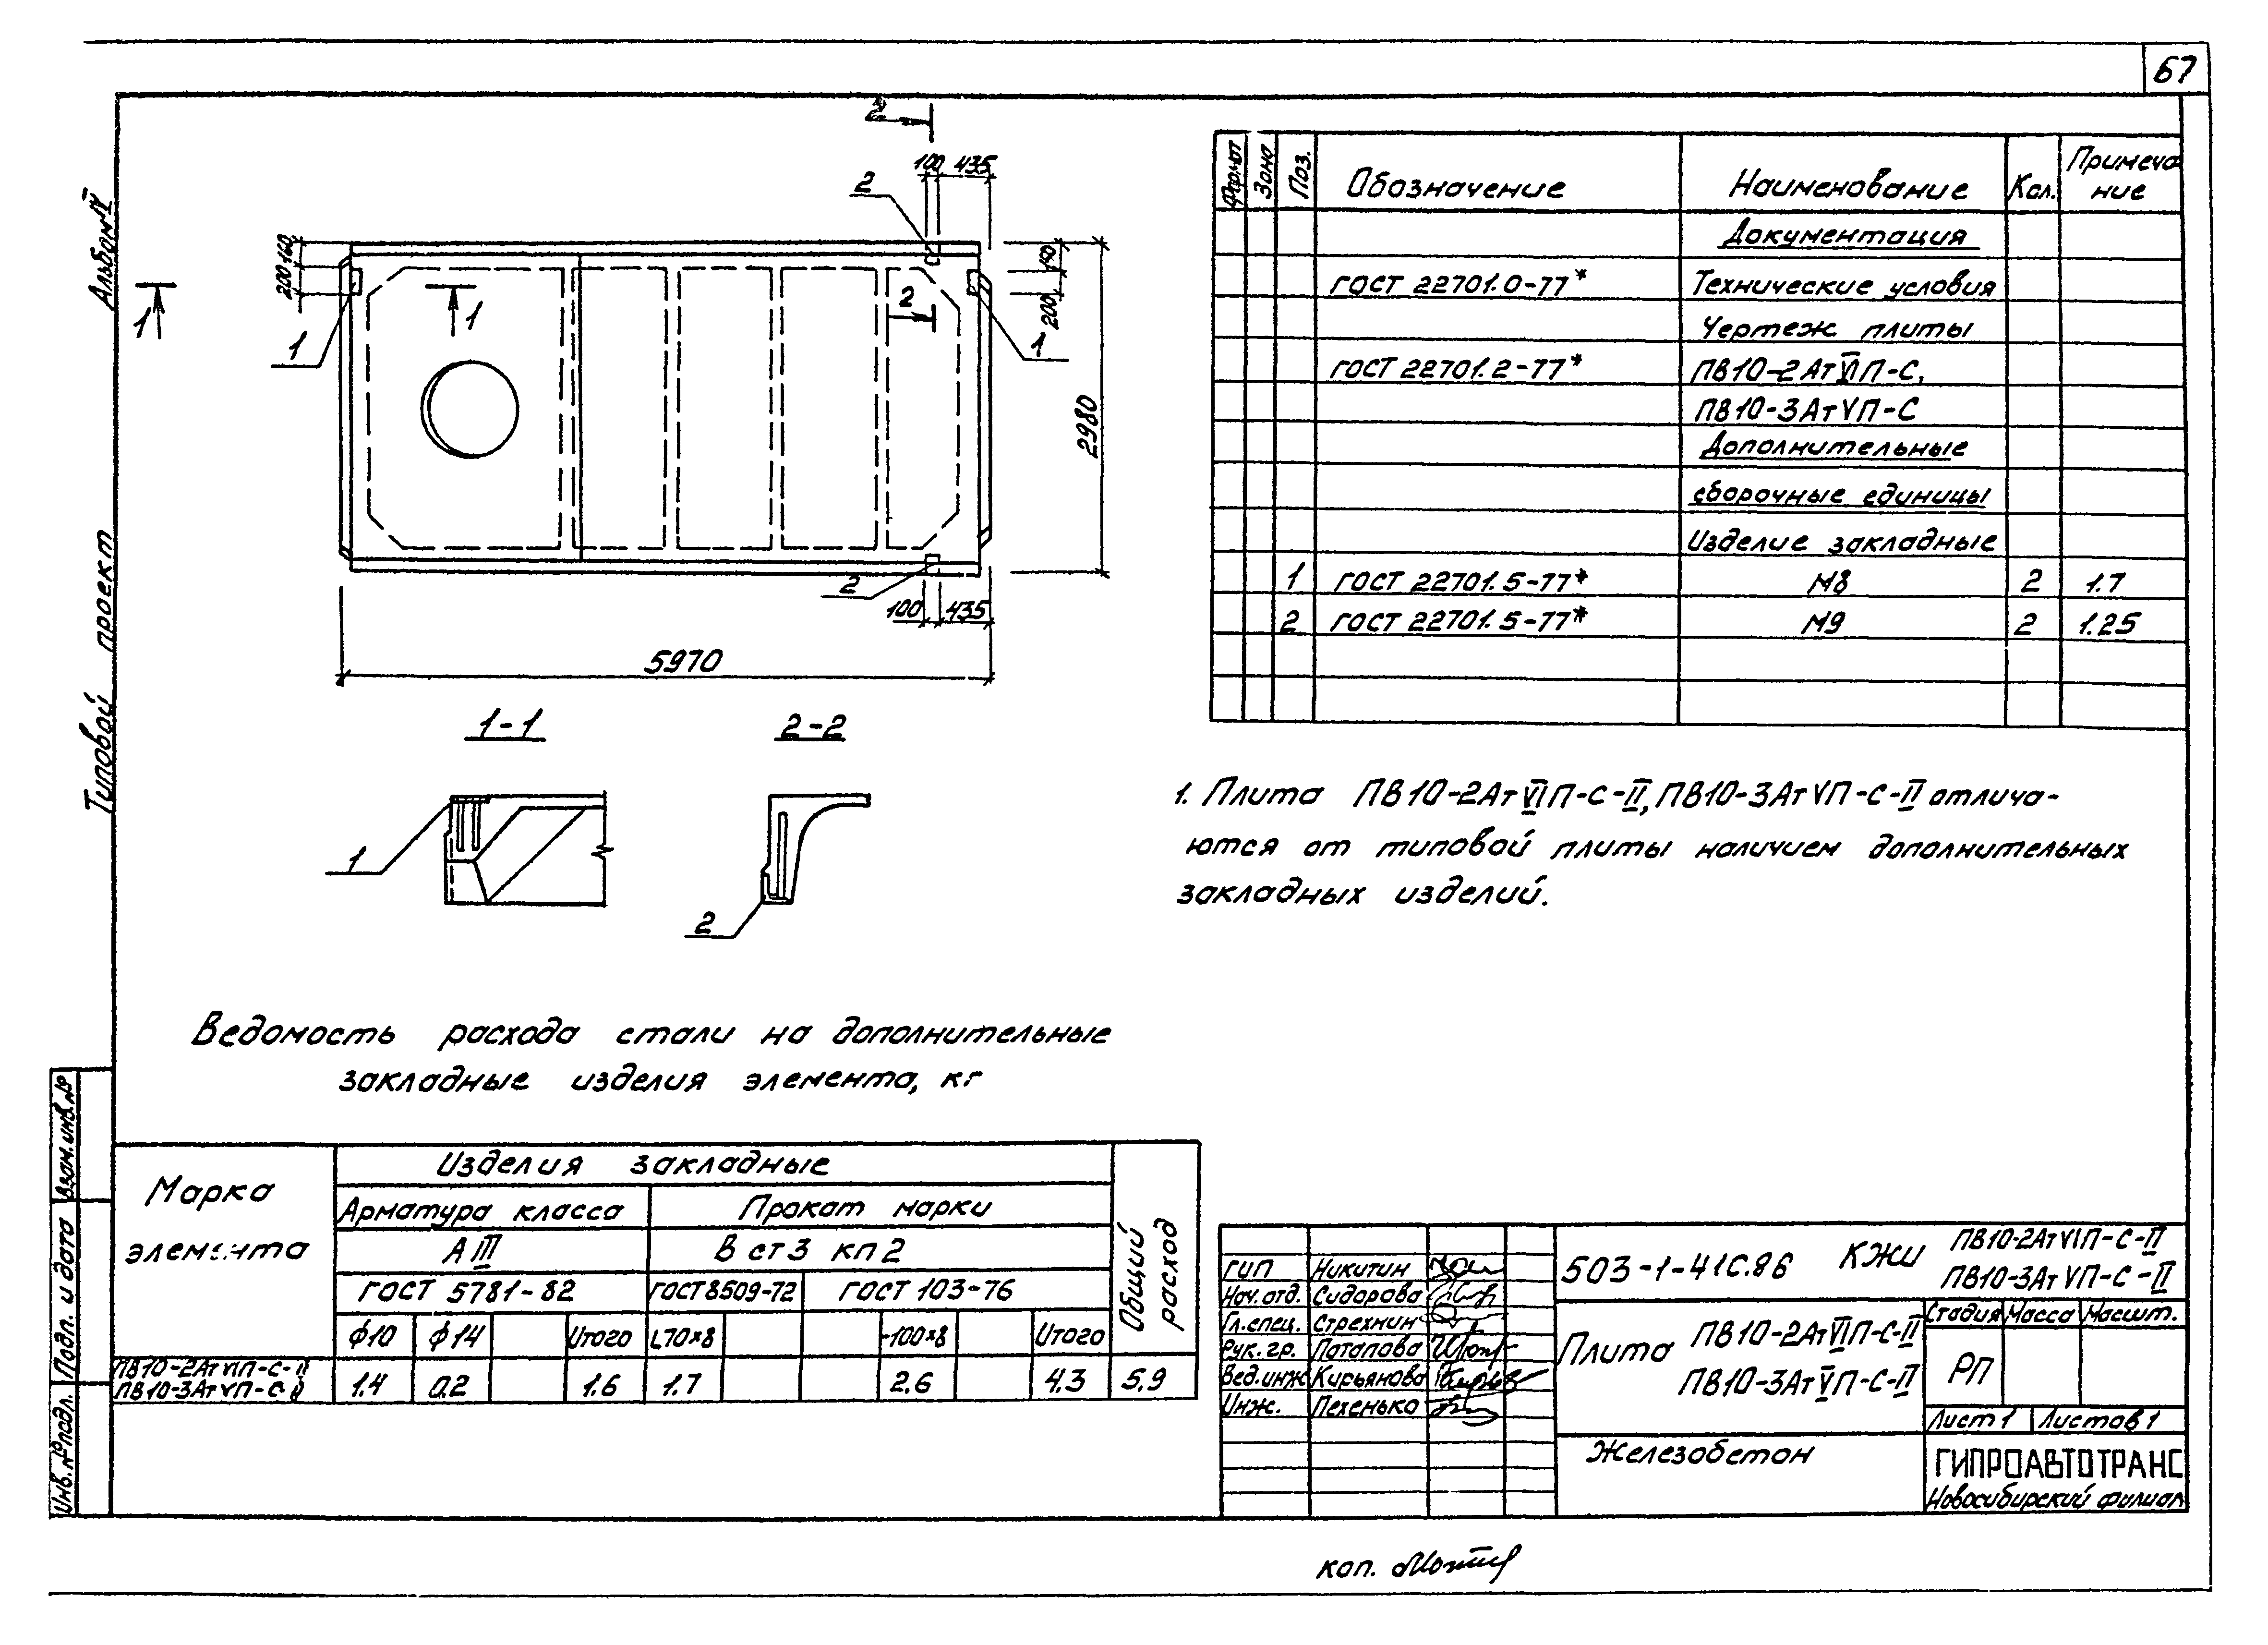 67
Альбом IV
Типовой проект
2
100 435
2
160
200
1
1
1
1
2
190
200
1
2980
2
100 435
5970
1-1
2-2
1
2
Формат Зона Поз. Обозначение Наименование Кол. Примечание
Документация
ГОСТ 22701.0-77* Технические условия
Чертеж плиты
ГОСТ 22701.2-77* ПВ10-2АтVIП-С,
ПВ10-3АтVП-С
Дополнительные
сборочные единицы
Изделие закладные
1 ГОСТ 22701.5-77* М8 2 1.7
2 ГОСТ 22701.5-77* М9 2 1.25
1. Плита ПВ10-2АтVIП-С-II, ПВ10-3АтVП-С-II отлича-
ются от типовой плиты наличием дополнительных
закладных изделий.
Ведомость расхода стали на дополнительные
закладные изделия элемента, кг
Марка элемента
Изделия закладные
Общий расход
Арматура класса Прокат марки
АIII Вст3 кп2
ГОСТ 5781-82 ГОСТ8509-72 ГОСТ 103-76
ϕ10 ϕ14 Итого L70×8 -100×8 Итого
ПВ10-2АтVIП-С-II
ПВ10-3АтVП-С-II
1.4 0.2 1.6 1.7 2.6 4.3 5.9
Взам.инв.№
Подп. и дата
Инв.№подл.
ГИП Никитин
Нач.отд. Сидорова
Гл.спец. Стрехнин
Рук.гр. Потапова
Вед.инж Кирьянова
Инж. Пехенько
503-1-41С.86 КЖИ ПВ10-2АтVIП-С-II
ПВ10-3АтVП-С-II
Плита ПВ10-2АтVIП-С-II
ПВ10-3АтVП-С-II
Стадия Масса Масшт.
РП
Лист 1 Листов 1
Железобетон
ГИПРОАВТОТРАНС
Новосибирский филиал
коп.